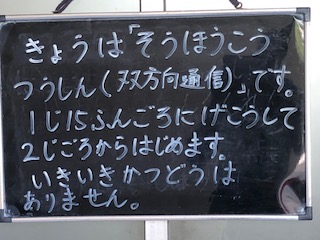 きょうは「そうほうこう
つうしん(双方向通信)」です。
1じ15ふんごろにげこうして
2じごろからはじめます。
いきいきかつどうは
ありません。